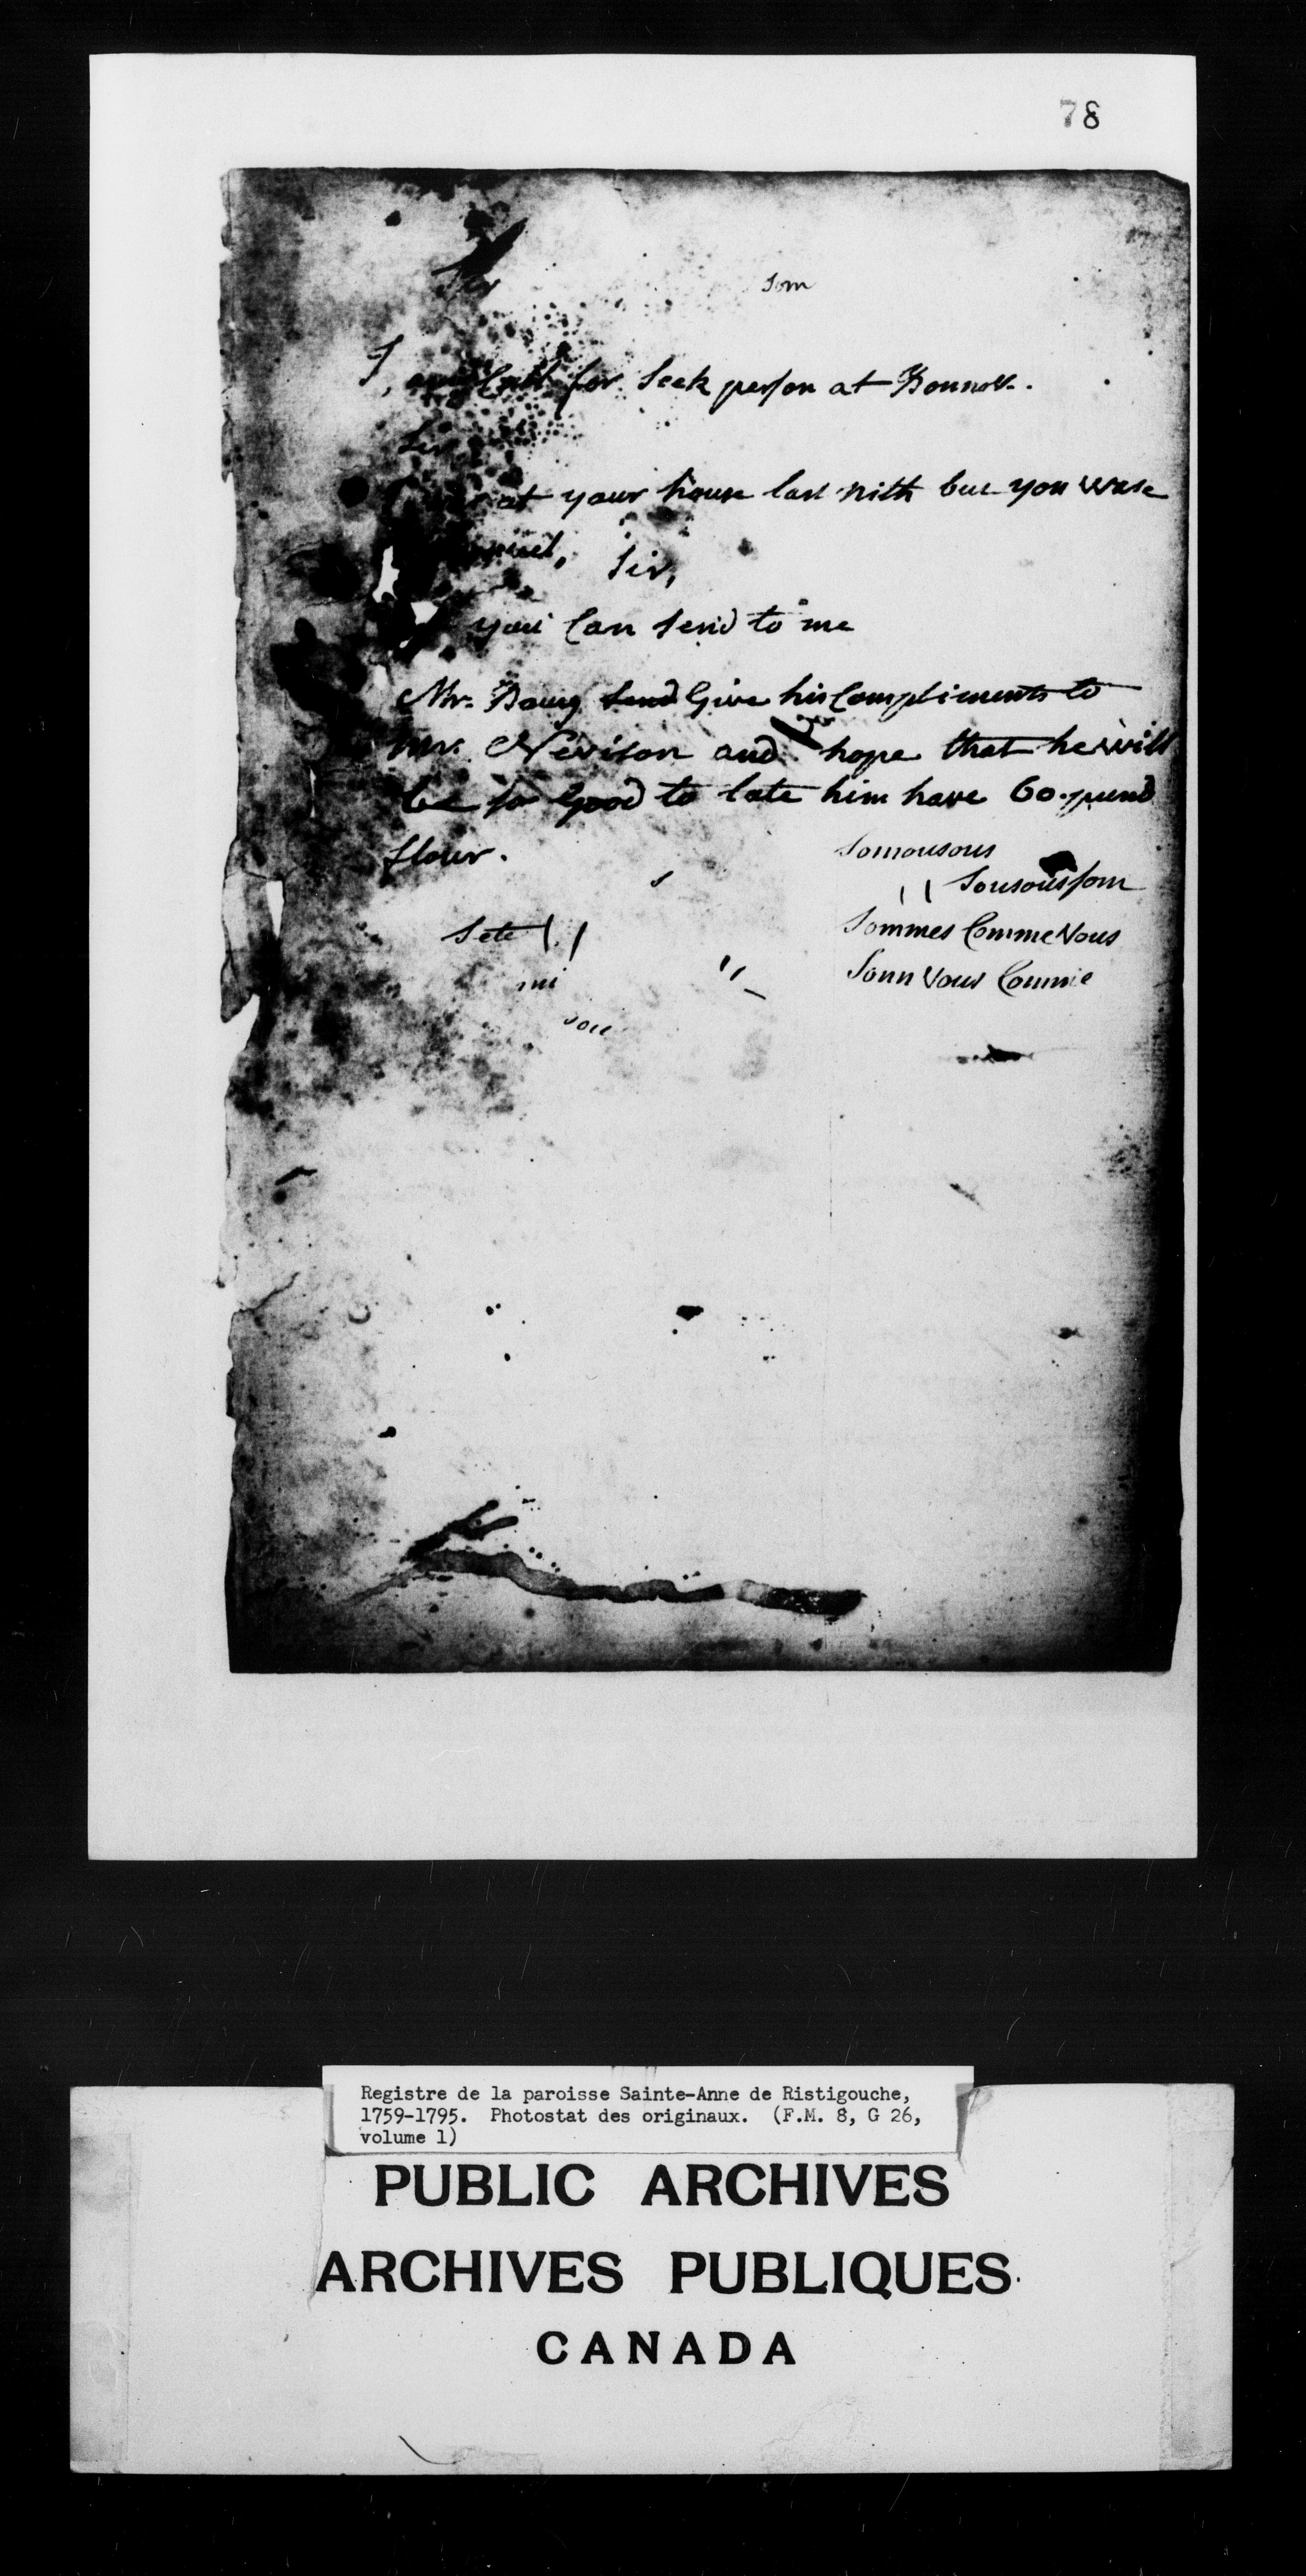 78
Sir
Som
I, am Call for Seek person at Bonnav.
Sir
at your house last nith but you wase
Sir,
you Can Send to me
Mr. Bourg Send Give his Compliments to
Mr. Nevison and hope that he will
be so Good to late him have 60. pund
flour.
Somousous
Sousoussom
Sete
Sommes Comme Vous
mi
Sonn Vous Comme
sou
Registre de la paroisse Sainte-Anne de Ristigouche,
1759-1795. Photostat des originaux. (F.M. 8, G 26,
volume 1)
PUBLIC ARCHIVES
ARCHIVES PUBLIQUES
CANADA